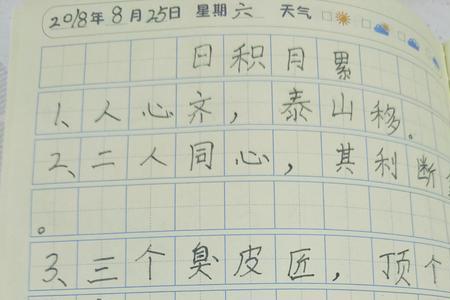 2018年8月25日 星期六 天气
日积月累
1、人心齐，泰山移。
2、二人同心，其利断
。
3、三个臭皮匠，顶个